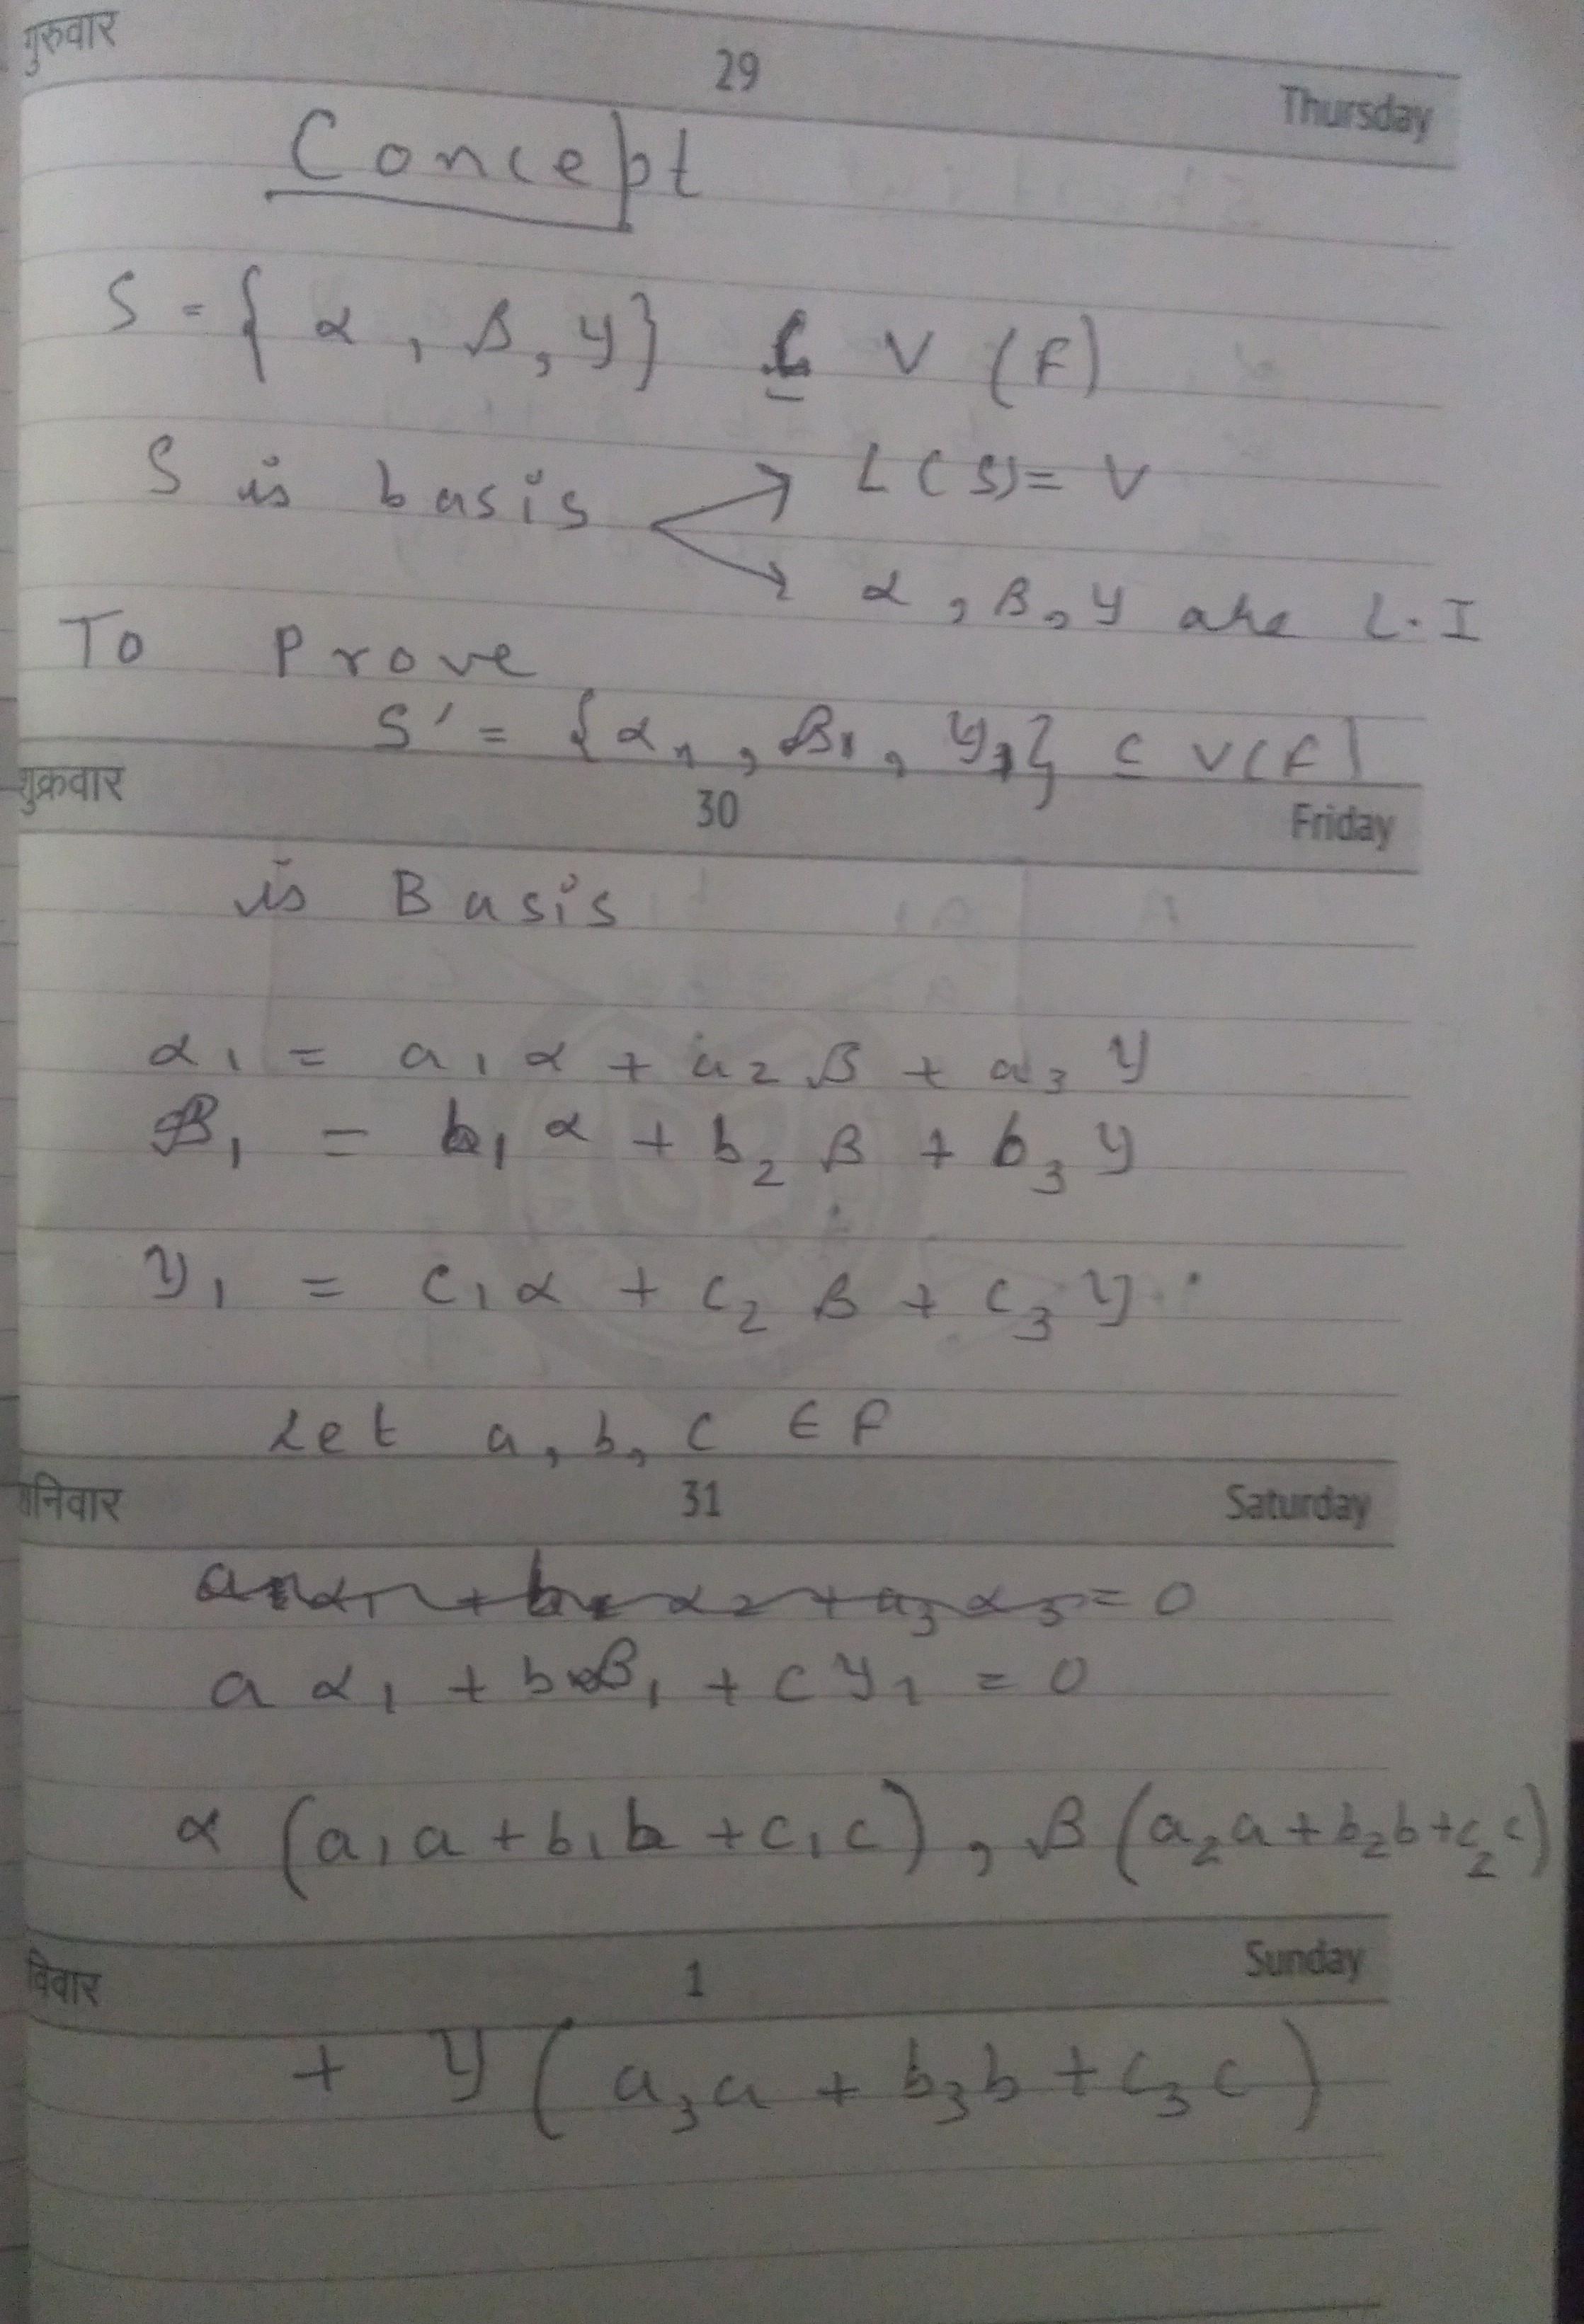 गुरुवार 29 Thursday
Concept
S = { α , β , y } ⊆ V (F)
S is basis → L(S) = V
→ α , β , y are L.I
To Prove
S' = {α₁ , β₁ , y₁} ⊆ V(F)
शुक्रवार 30 Friday
is Basis
α₁ = a₁ α + a₂ β + a₃ y
β₁ = b₁ α + b₂ β + b₃ y
y₁ = c₁ α + c₂ β + c₃ y .
Let a, b, c ∈ F
निवार 31 Saturday
α₁ + b α₂ + a₃ α₃ = 0
a α₁ + b β₁ + c y₁ = 0
α (a₁a + b₁b + c₁c) , β (a₂a + b₂b + c₂c)
विवार 1 Sunday
+ y ( a₃a + b₃b + c₃c )